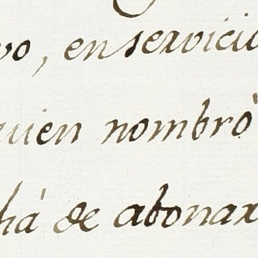 vo, en servicio
quien nombró
há de abonar